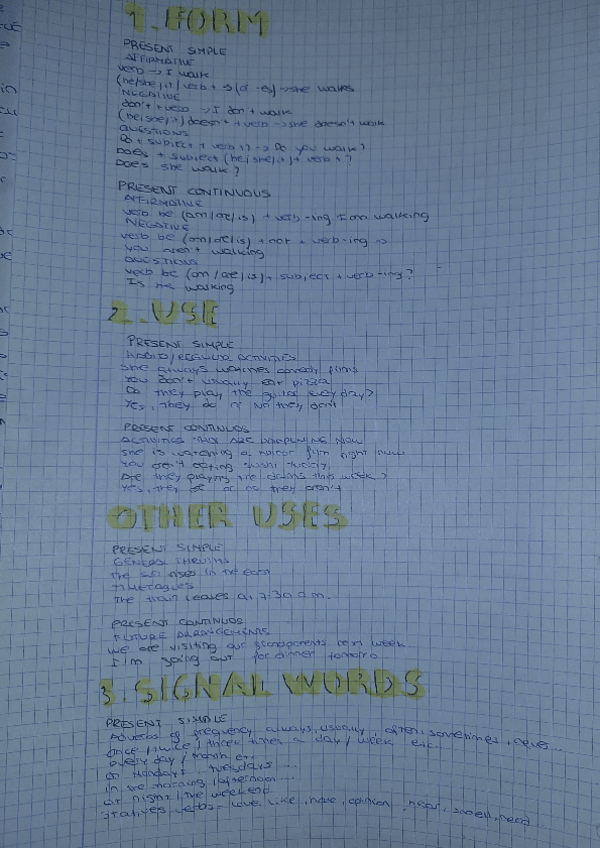 1. FORM
PRESENT SIMPLE
AFFIRMATIVE
verb -> I walk
(he/she/it) verb + s (o -es) -> she walks
NEGATIVE
don't + verb -> I don't walk
(he/she/it) doesn't + verb -> she doesn't walk
QUESTIONS
Do + subject + verb +? -> Do you walk?
Does + subject (he/she/it) + verb +?
Does she walk?
PRESENT CONTINUOUS
AFFIRMATIVE
verb be (am/are/is) + verb -ing I am walking
NEGATIVE
verb be (am/are/is) + not + verb -ing ->
you aren't walking
QUESTIONS
verb be (am/are/is) + subject + verb -ing?
Is he walking
2. USE
PRESENT SIMPLE
ACTIVITIES
She always watches comedy films
You don't usually eat pizza
Do they play the guitar every day?
Yes, they do or No they don't
PRESENT CONTINUOS
ACTIVITIES THAT ARE HAPPENING NOW
She is watching a horror film right now
You aren't eating sushi
Are they playing the this week?
Yes, they or no they aren't
OTHER USES
PRESENT SIMPLE
GENERAL
The sun rises in the east
The train leaves at 7:30 a.m.
PRESENT CONTINUOS
FUTURE ARRANGEMENTS
we are visiting our grandparents week
I'm going out for dinner
3. SIGNAL WORDS
PRESENT SIMPLE
Adverbs of frequency always, usually, often, sometimes, never...
Once / twice / three times a day / week etc.
every day / month etc.
on Mondays Tuesdays ...
in the morning / afternoon ...
at night / the weekend
statives verbs- love, like, have, hear, smell, need